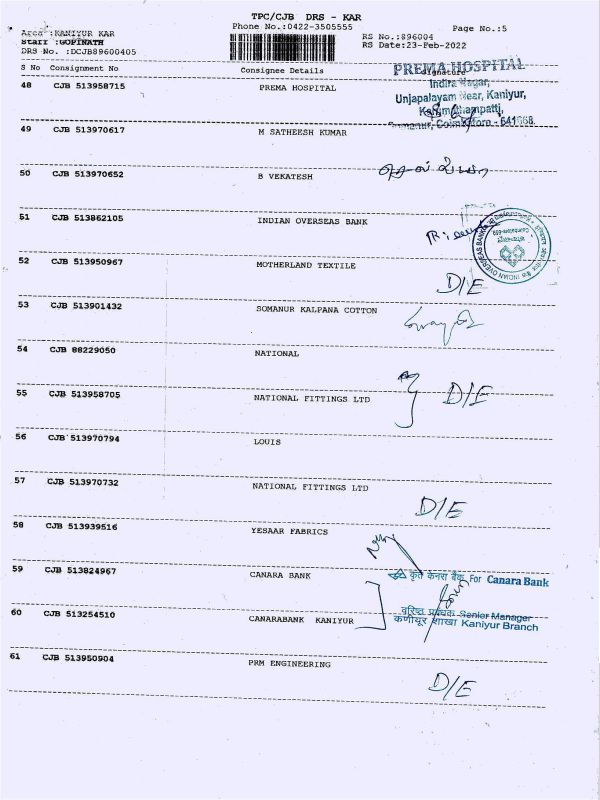 TPC/CJB DRS - KAR
Phone No.:0422-3505555
Page No.:5
Area :KANIYUR KAR
RS No.:896004
Staff :GOPINATH
RS Date:23-Feb-2022
DRS No. :DCJB89600405
S No Consignment No Consignee Details Signature
48 CJB 513958715 PREMA HOSPITAL
PREMA HOSPITAL
Indira Nagar,
Unjapalayam Near, Kaniyur,
Karumathampatti,
Somanur, Coimbatore - 641668.
49 CJB 513970617 M SATHEESH KUMAR
50 CJB 513970652 B VEKATESH
51 CJB 513862105 INDIAN OVERSEAS BANK
INDIAN OVERSEAS BANK
52 CJB 513950967 MOTHERLAND TEXTILE
D/E
53 CJB 513901432 SOMANUR KALPANA COTTON
54 CJB 88229050 NATIONAL
55 CJB 513958705 NATIONAL FITTINGS LTD
D/E
56 CJB 513970794 LOUIS
57 CJB 513970732 NATIONAL FITTINGS LTD
D/E
58 CJB 513939516 YESAAR FABRICS
59 CJB 513824967 CANARA BANK
कृते केनरा बैंक For Canara Bank
60 CJB 513254510 CANARABANK KANIYUR
वरिष्ठ प्रबंधक Senior Manager
कणीयूर शाखा Kaniyur Branch
61 CJB 513950904 PRM ENGINEERING
D/E